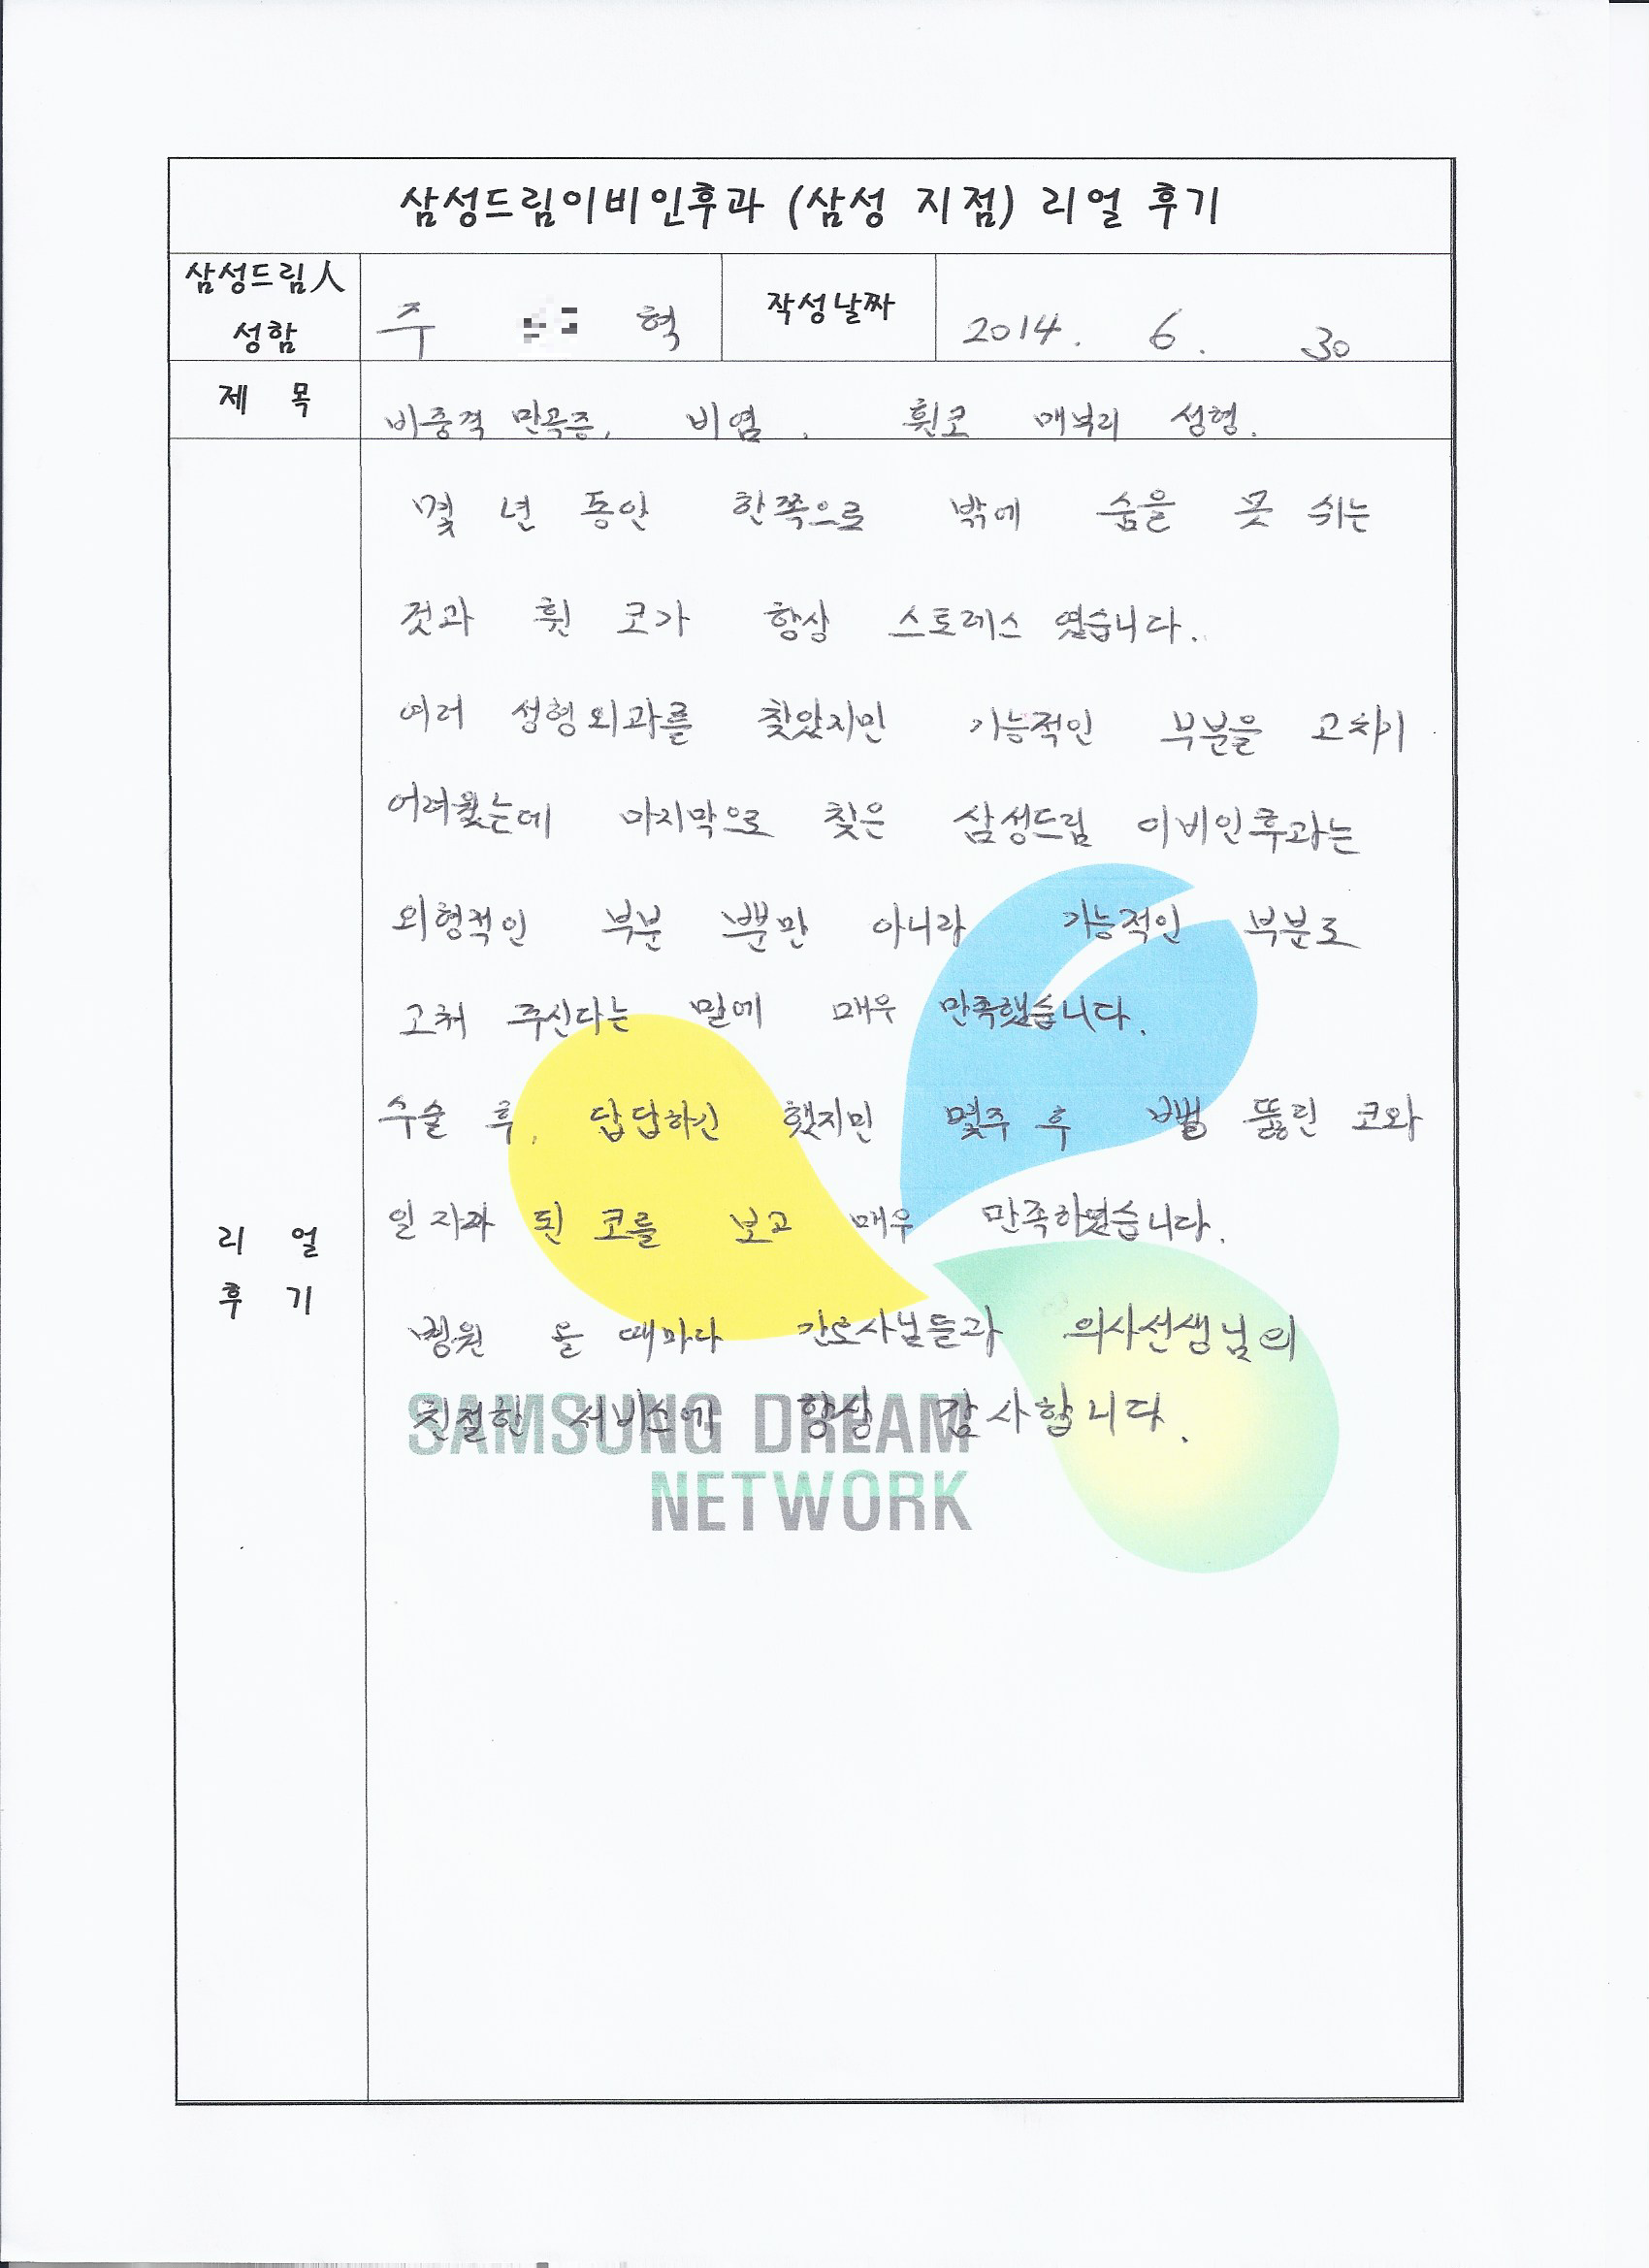 삼성드림이비인후과 (삼성 지점) 리얼 후기
삼성드림人
성함
주 혁
작성날짜
2014. 6. 30
제 목
비중격 만곡증, 비염, 휜코 매부리 성형.
몇 년 동안 한쪽으로 밖에 숨을 못 쉬는
것과 휜 코가 항상 스토레스 였습니다.
여러 성형외과를 찾았지만 기능적인 부분을 고치기
어려웠는데 마지막으로 찾은 삼성드림 이비인후과는
외형적인 부분 뿐만 아니라 기능적인 부분도
고쳐 주신다는 말에 매우 만족했습니다.
수술 후, 답답하긴 했지만 몇주 후 뻥 뚫린 코와
일자가 된 코를 보고 매우 만족하였습니다.
병원 올 때마다 간호사님들과 의사선생님의
친절한 서비스에 항상 감사합니다.
리 얼
후 기
SAMSUNG DREAM
NETWORK